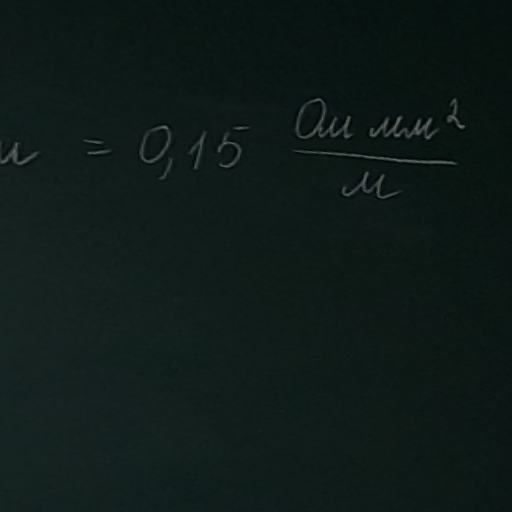 м = 0,15 Ом мм²
м